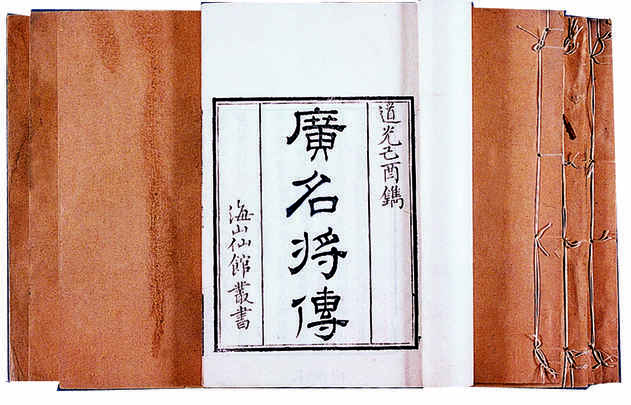 道光己酉鐫
廣名将傳
海山仙館叢書